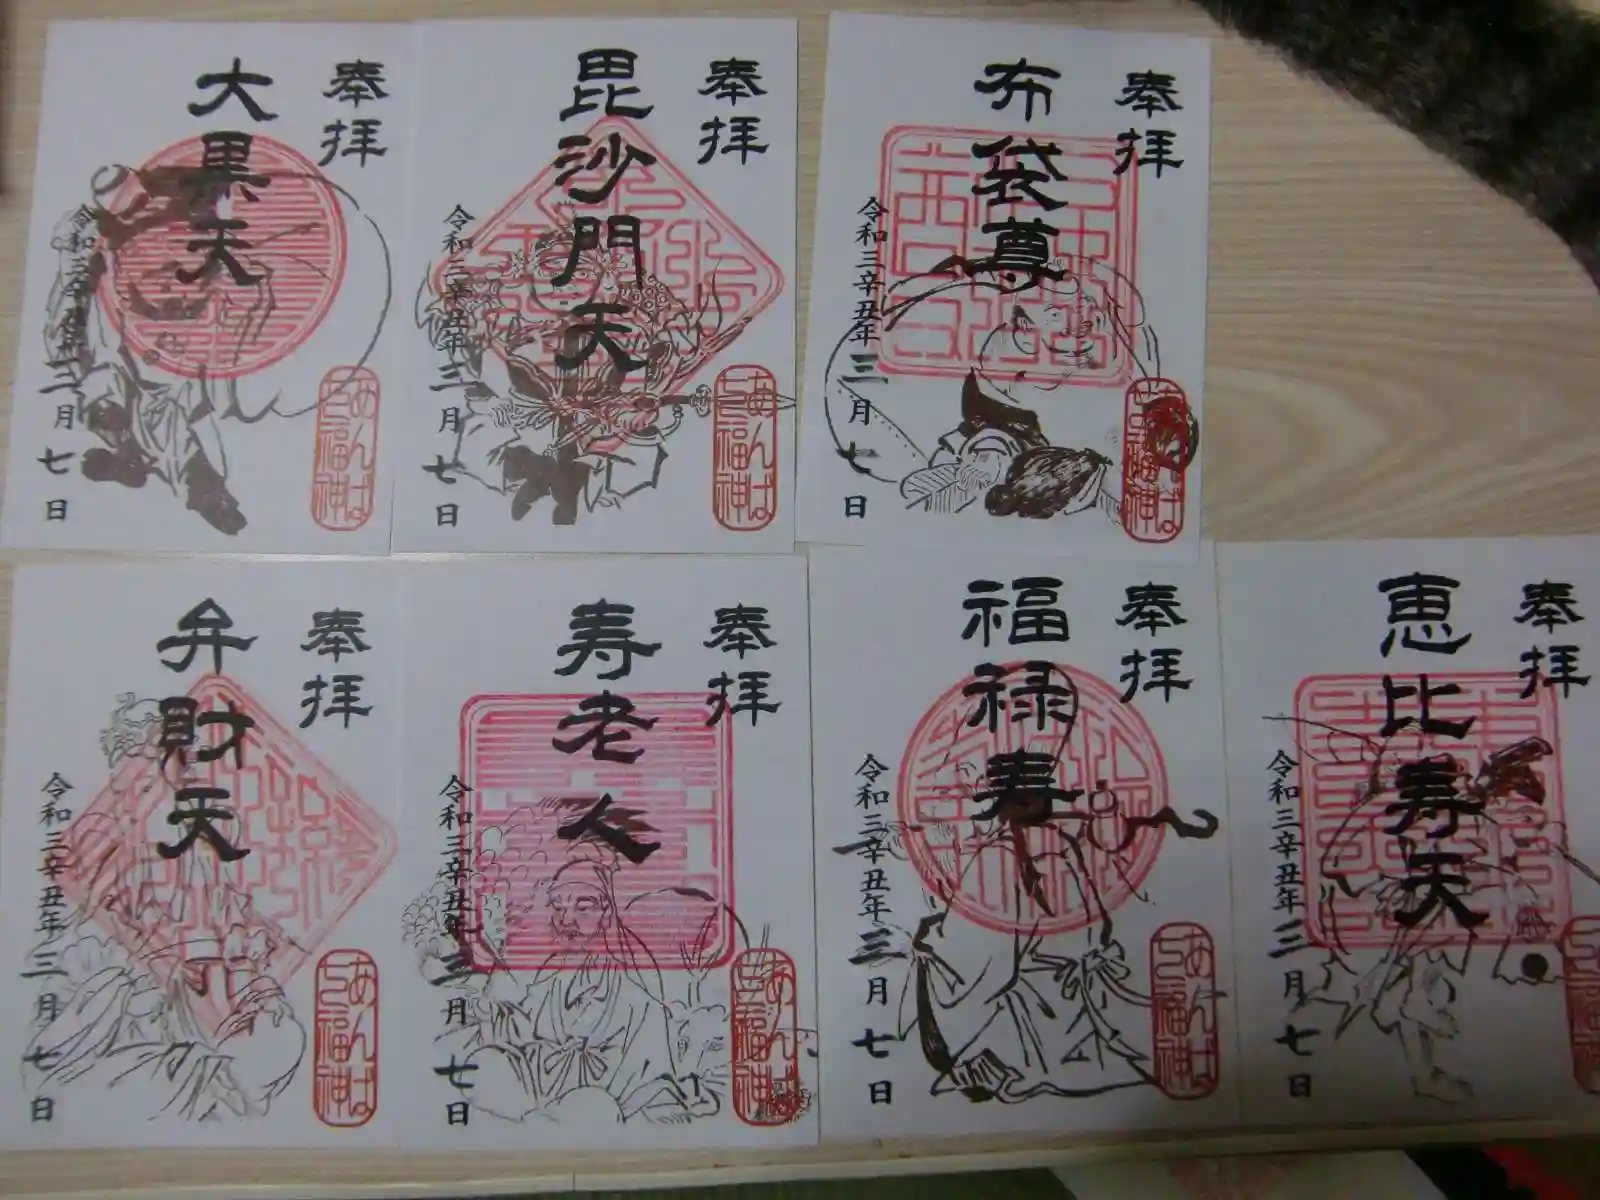 奉拝
大黒天
令和三辛丑年三月七日
あんば
七福神
奉拝
毘沙門天
令和三辛丑年三月七日
あんば
七福神
奉拝
布袋尊
令和三辛丑年三月七日
あんば
七福神
奉拝
弁財天
令和三辛丑年三月七日
あんば
七福神
奉拝
寿老人
令和三辛丑年三月七日
あんば
七福神
奉拝
福禄寿
令和三辛丑年三月七日
あんば
七福神
奉拝
恵比寿天
令和三辛丑年三月七日